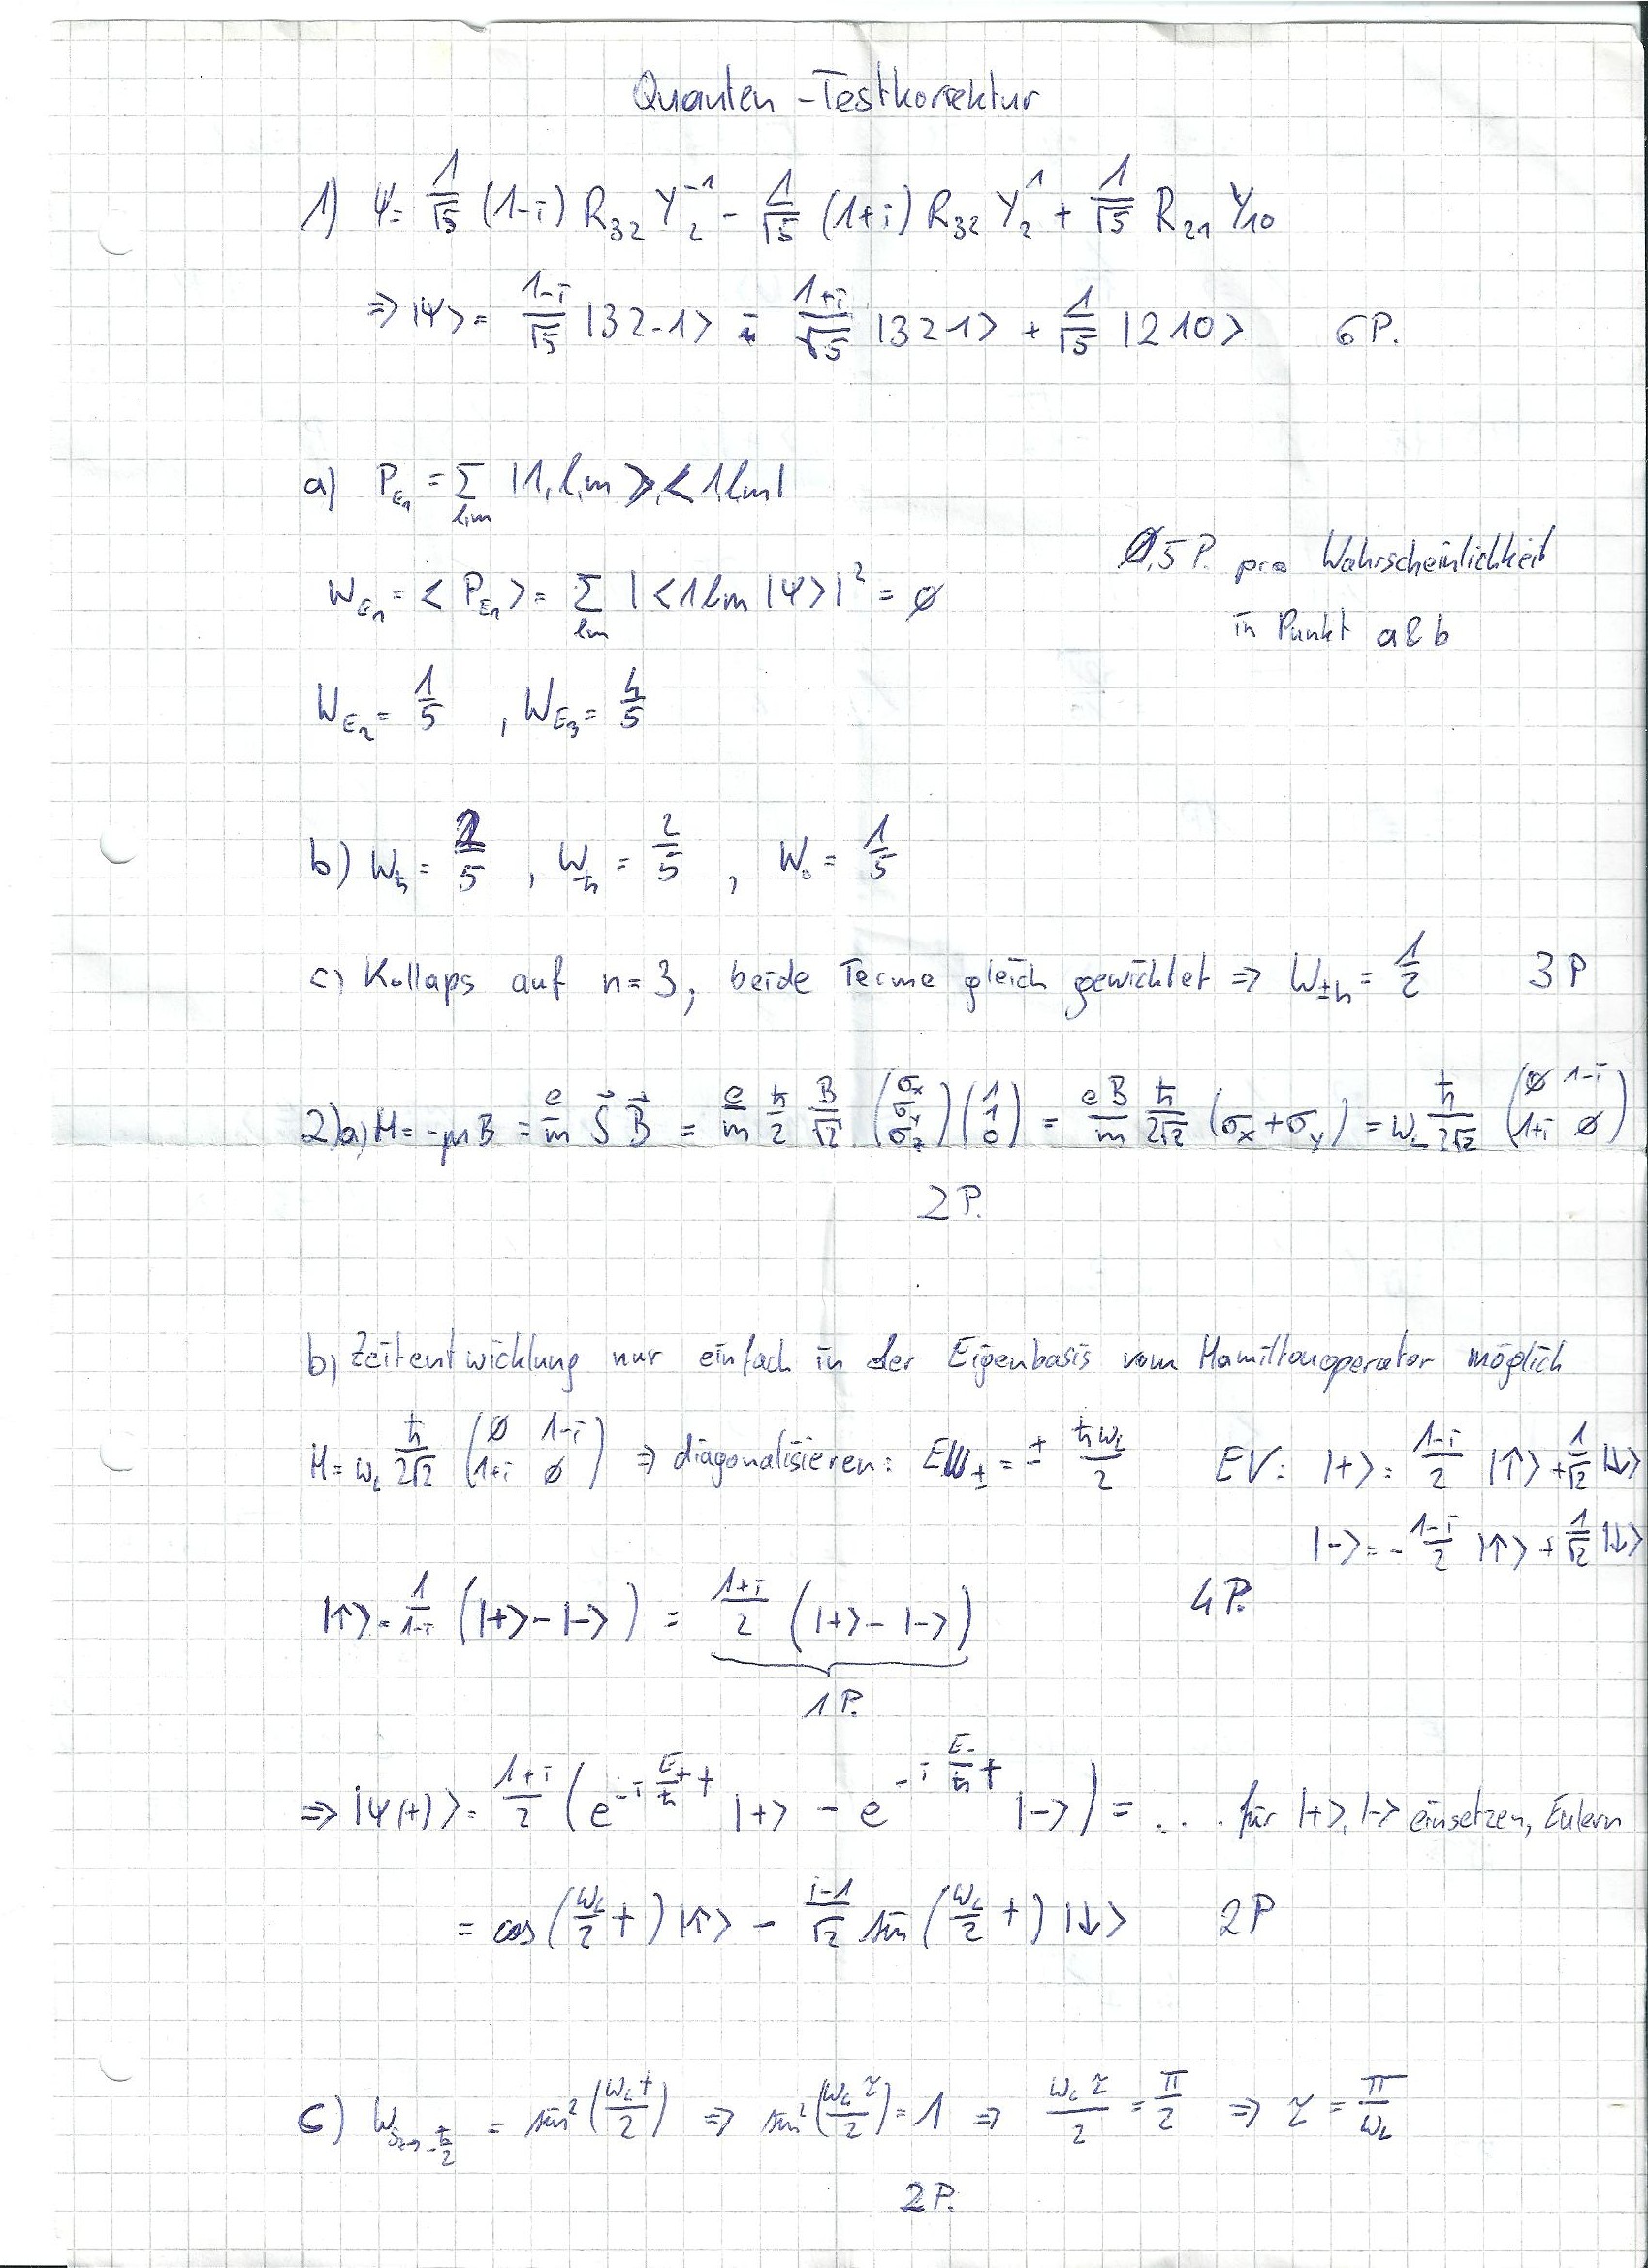 Quanten-Testkorrektur
1) Ψ = 1/√5 (1-i) R₃₂ Y₂⁻¹ - 1/√5 (1+i) R₃₂ Y₂¹ + 1/√5 R₂₁ Y₁₀
⇒ |Ψ> = (1-i)/√5 |32-1> - (1+i)/√5 |321> + 1/√5 |210> 6P.
a) P_E₁ = Σ_l,m |1,l,m><1lm|
Ø,5P. pro Wahrscheinlichkeit
W_E₁ = <P_E₁> = Σ_lm |<1lm|Ψ>|² = Ø
in Punkt a&b
W_E₂ = 1/5 , W_E₃ = 4/5
b) W_ħ = 2/5 , W_-ħ = 2/5 , W₀ = 1/5
c) Kollaps auf n=3, beide Terme gleich gewichtet ⇒ W_±ħ = 1/2 3P
2)a) H = -μB = e/m S⃗ B⃗ = e/m ħ/2 B/√2 (σx σy σz)(1 1 0) = eB/m ħ/2√2 (σx + σy) = ω_L ħ/2√2 (Ø 1-i 1+i Ø)
2P.
b) Zeitentwicklung nur einfach in der Eigenbasis vom Hamiltonoperator möglich
H = ω_L ħ/2√2 (Ø 1-i 1+i Ø) ⇒ diagonalisieren: EW± = ± ħω_L/2 EV: |+> = (1-i)/2 |↑> + 1/√2 |↓>
|-> = -(1-i)/2 |↑> + 1/√2 |↓>
|↑> = 1/(1-i) (|+> - |->) = (1+i)/2 (|+> - |->) 4P.
1P.
⇒ |Ψ(t)> = (1+i)/2 (e^(-i E₊/ħ t) |+> - e^(-i E₋/ħ t) |->) = ... für |+>, |-> einsetzen, Eulern
= cos(ω_L/2 t) |↑> - (i-1)/√2 sin(ω_L/2 t) |↓> 2P
c) W_Sz=-ħ/2 = sin²(ω_L t/2) ⇒ sin²(ω_L τ/2) = 1 ⇒ ω_L τ/2 = π/2 ⇒ τ = π/ω_L
2P.